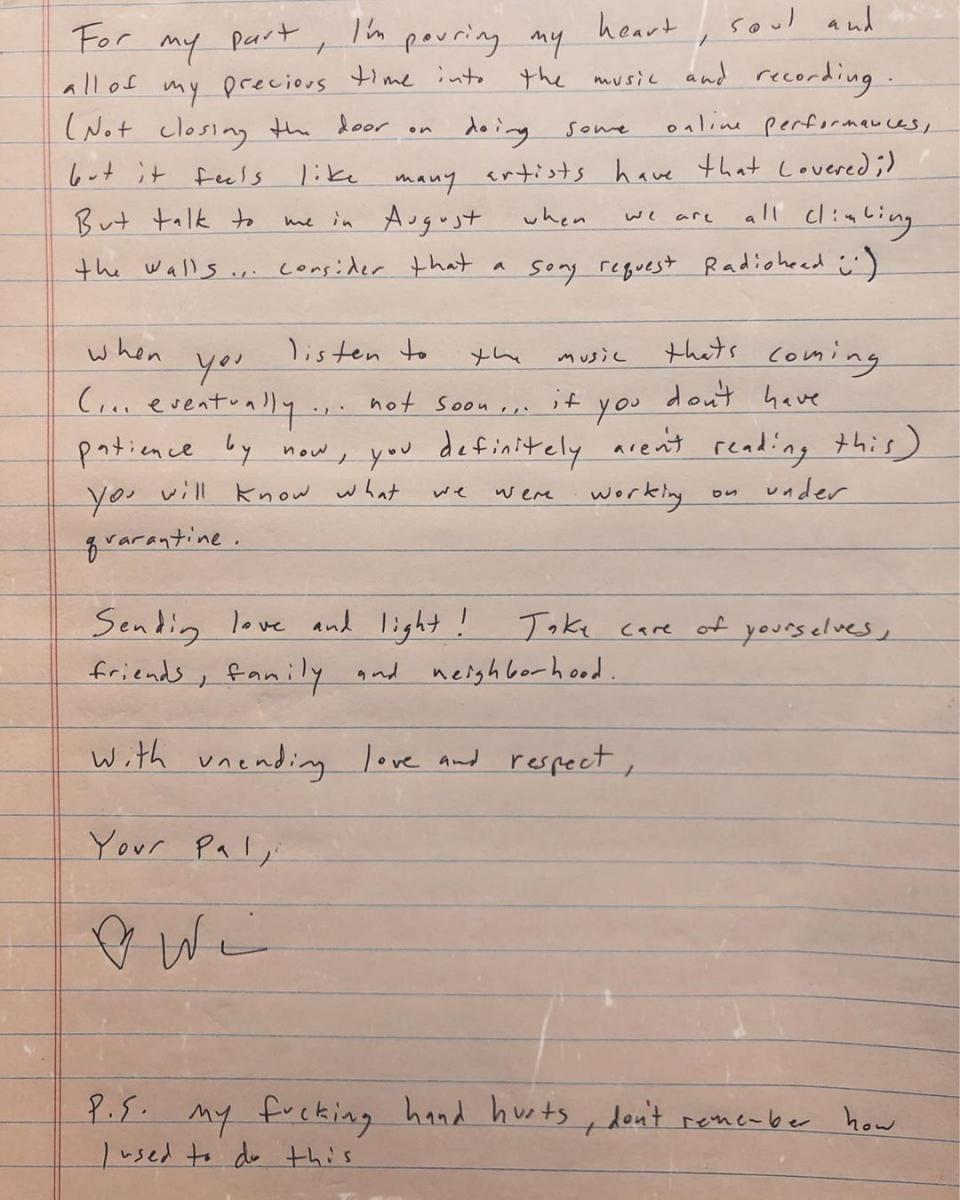 For my part, I'm pouring my heart, soul and
all of my precious time into the music and recording.
(Not closing the door on doing some online performances,
but it feels like many artists have that covered;)
But talk to me in August when we are all climbing
the walls... consider that a song request Radiohead :))
When you listen to the music thats coming
(... eventually... not soon... if you don't have
patience by now, you definitely aren't reading this)
you will know what we were working on under
quarantine.
Sending love and light! Take care of yourselves,
friends, family and neighborhood.
With unending love and respect,
Your Pal,
♡ Wi
P.S. my fucking hand hurts, don't remember how
I used to do this